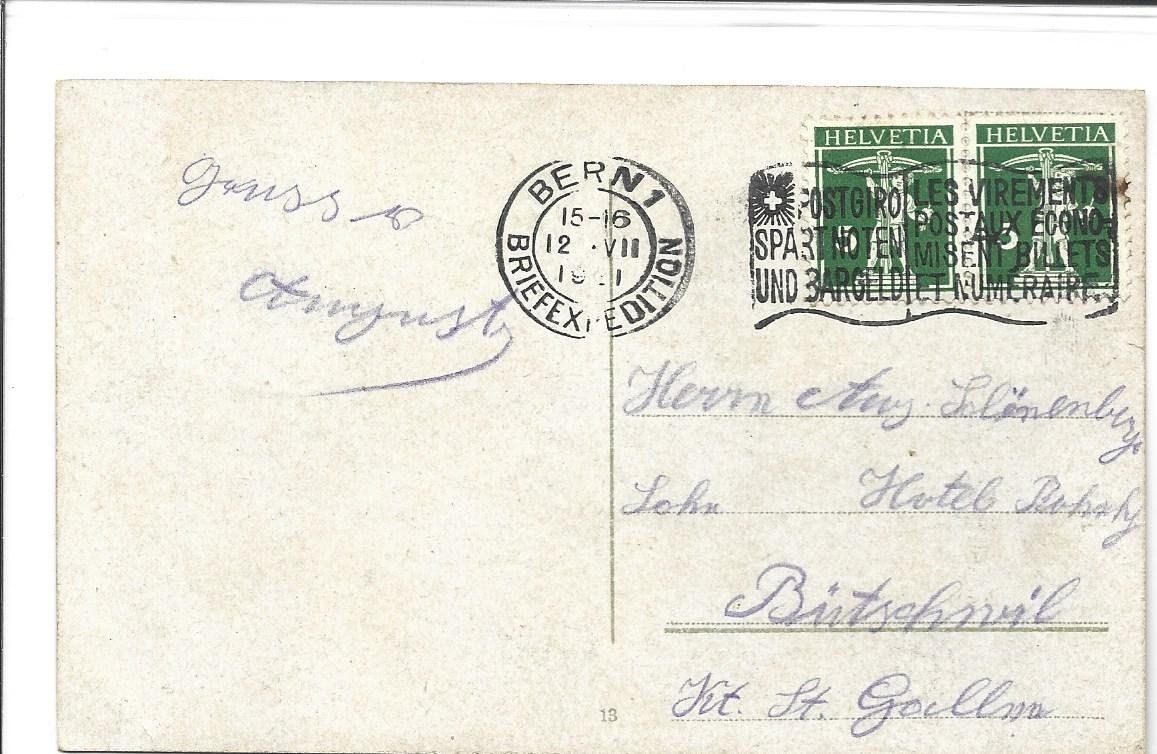 Gruss
August
BERN 1
15-16
12 . VII
BRIEFEXPEDITION
HELVETIA
HELVETIA
POSTGIRO
SPART NOTEN
UND BARGELD
LES VIREMENTS
POSTAUX ÉCONO-
MISENT BILLETS
ET NUMÉRAIRE.
Herrn Aug. Schönenberg
Sohn Hotel
Bütschwil
Kt. St. Gallen
13